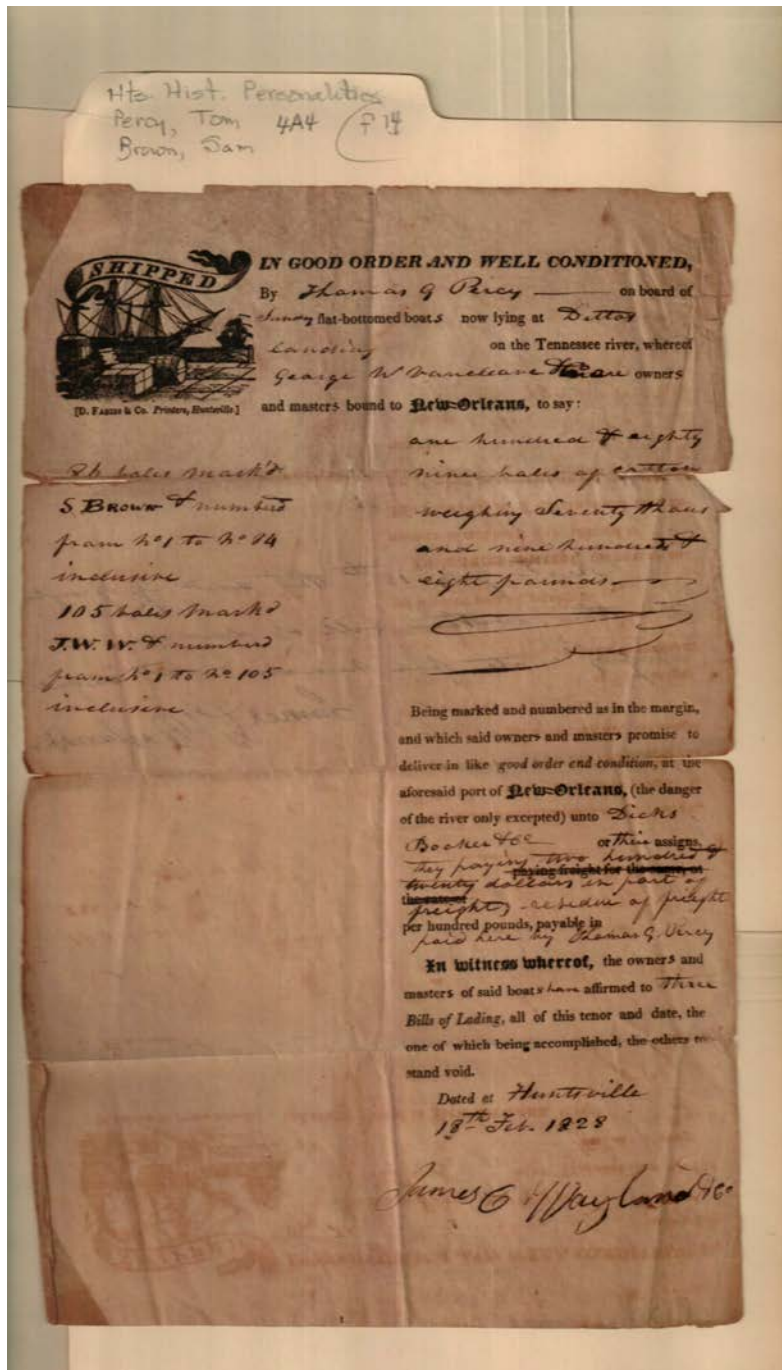 Hts Hist. Personalities
Percy, Tom 4A4 F 14
Brown, Sam
SHIPPED
IN GOOD ORDER AND WELL CONDITIONED,
By Thomas G Percy on board of
Sundry flat-bottomed boats now lying at Dittos
Landing on the Tennessee river, whereof
George W Vancleave & are owners
[D. FARISS & Co. Printers, Huntsville]
and masters bound to New-Orleans, to say:
one hundred & eighty
nine bales of cotton
weighing Seventy thous
and nine hundred &
eight pounds
bales mark'd
S. BROWN & numberd
from No 1 to No 84
inclusive
105 bales mark'd
J.W.W. & numberd
from No 1 to No 105
inclusive
Being marked and numbered as in the margin,
and which said owners and masters promise to
deliver in like good order end condition, at the
aforesaid port of New-Orleans, (the danger
of the river only excepted) unto Dicks
Booker & Co or their assigns,
they paying two hundred &
paying freight for the same, at
twenty dollars in part of
the rate of
freight, residue of freight
per hundred pounds, payable in
paid here by Thomas G. Percy
In witness whereof, the owners and
masters of said boats have affirmed to three
Bills of Lading, all of this tenor and date, the
one of which being accomplished, the others to
stand void.
Dated at Huntsville
18th Feb. 1828
James C Wayland & Co